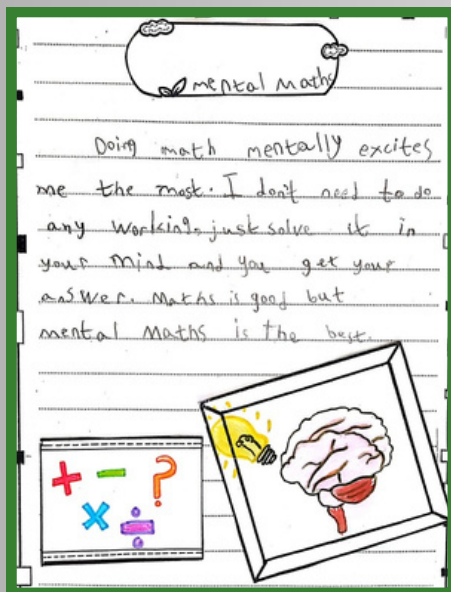 mental Maths
Doing math mentally excites
me the most. I don't need to do
any working, just solve it in
your mind and you get your
answer. Maths is good but
mental Maths is the best.
+ - ?
× ÷